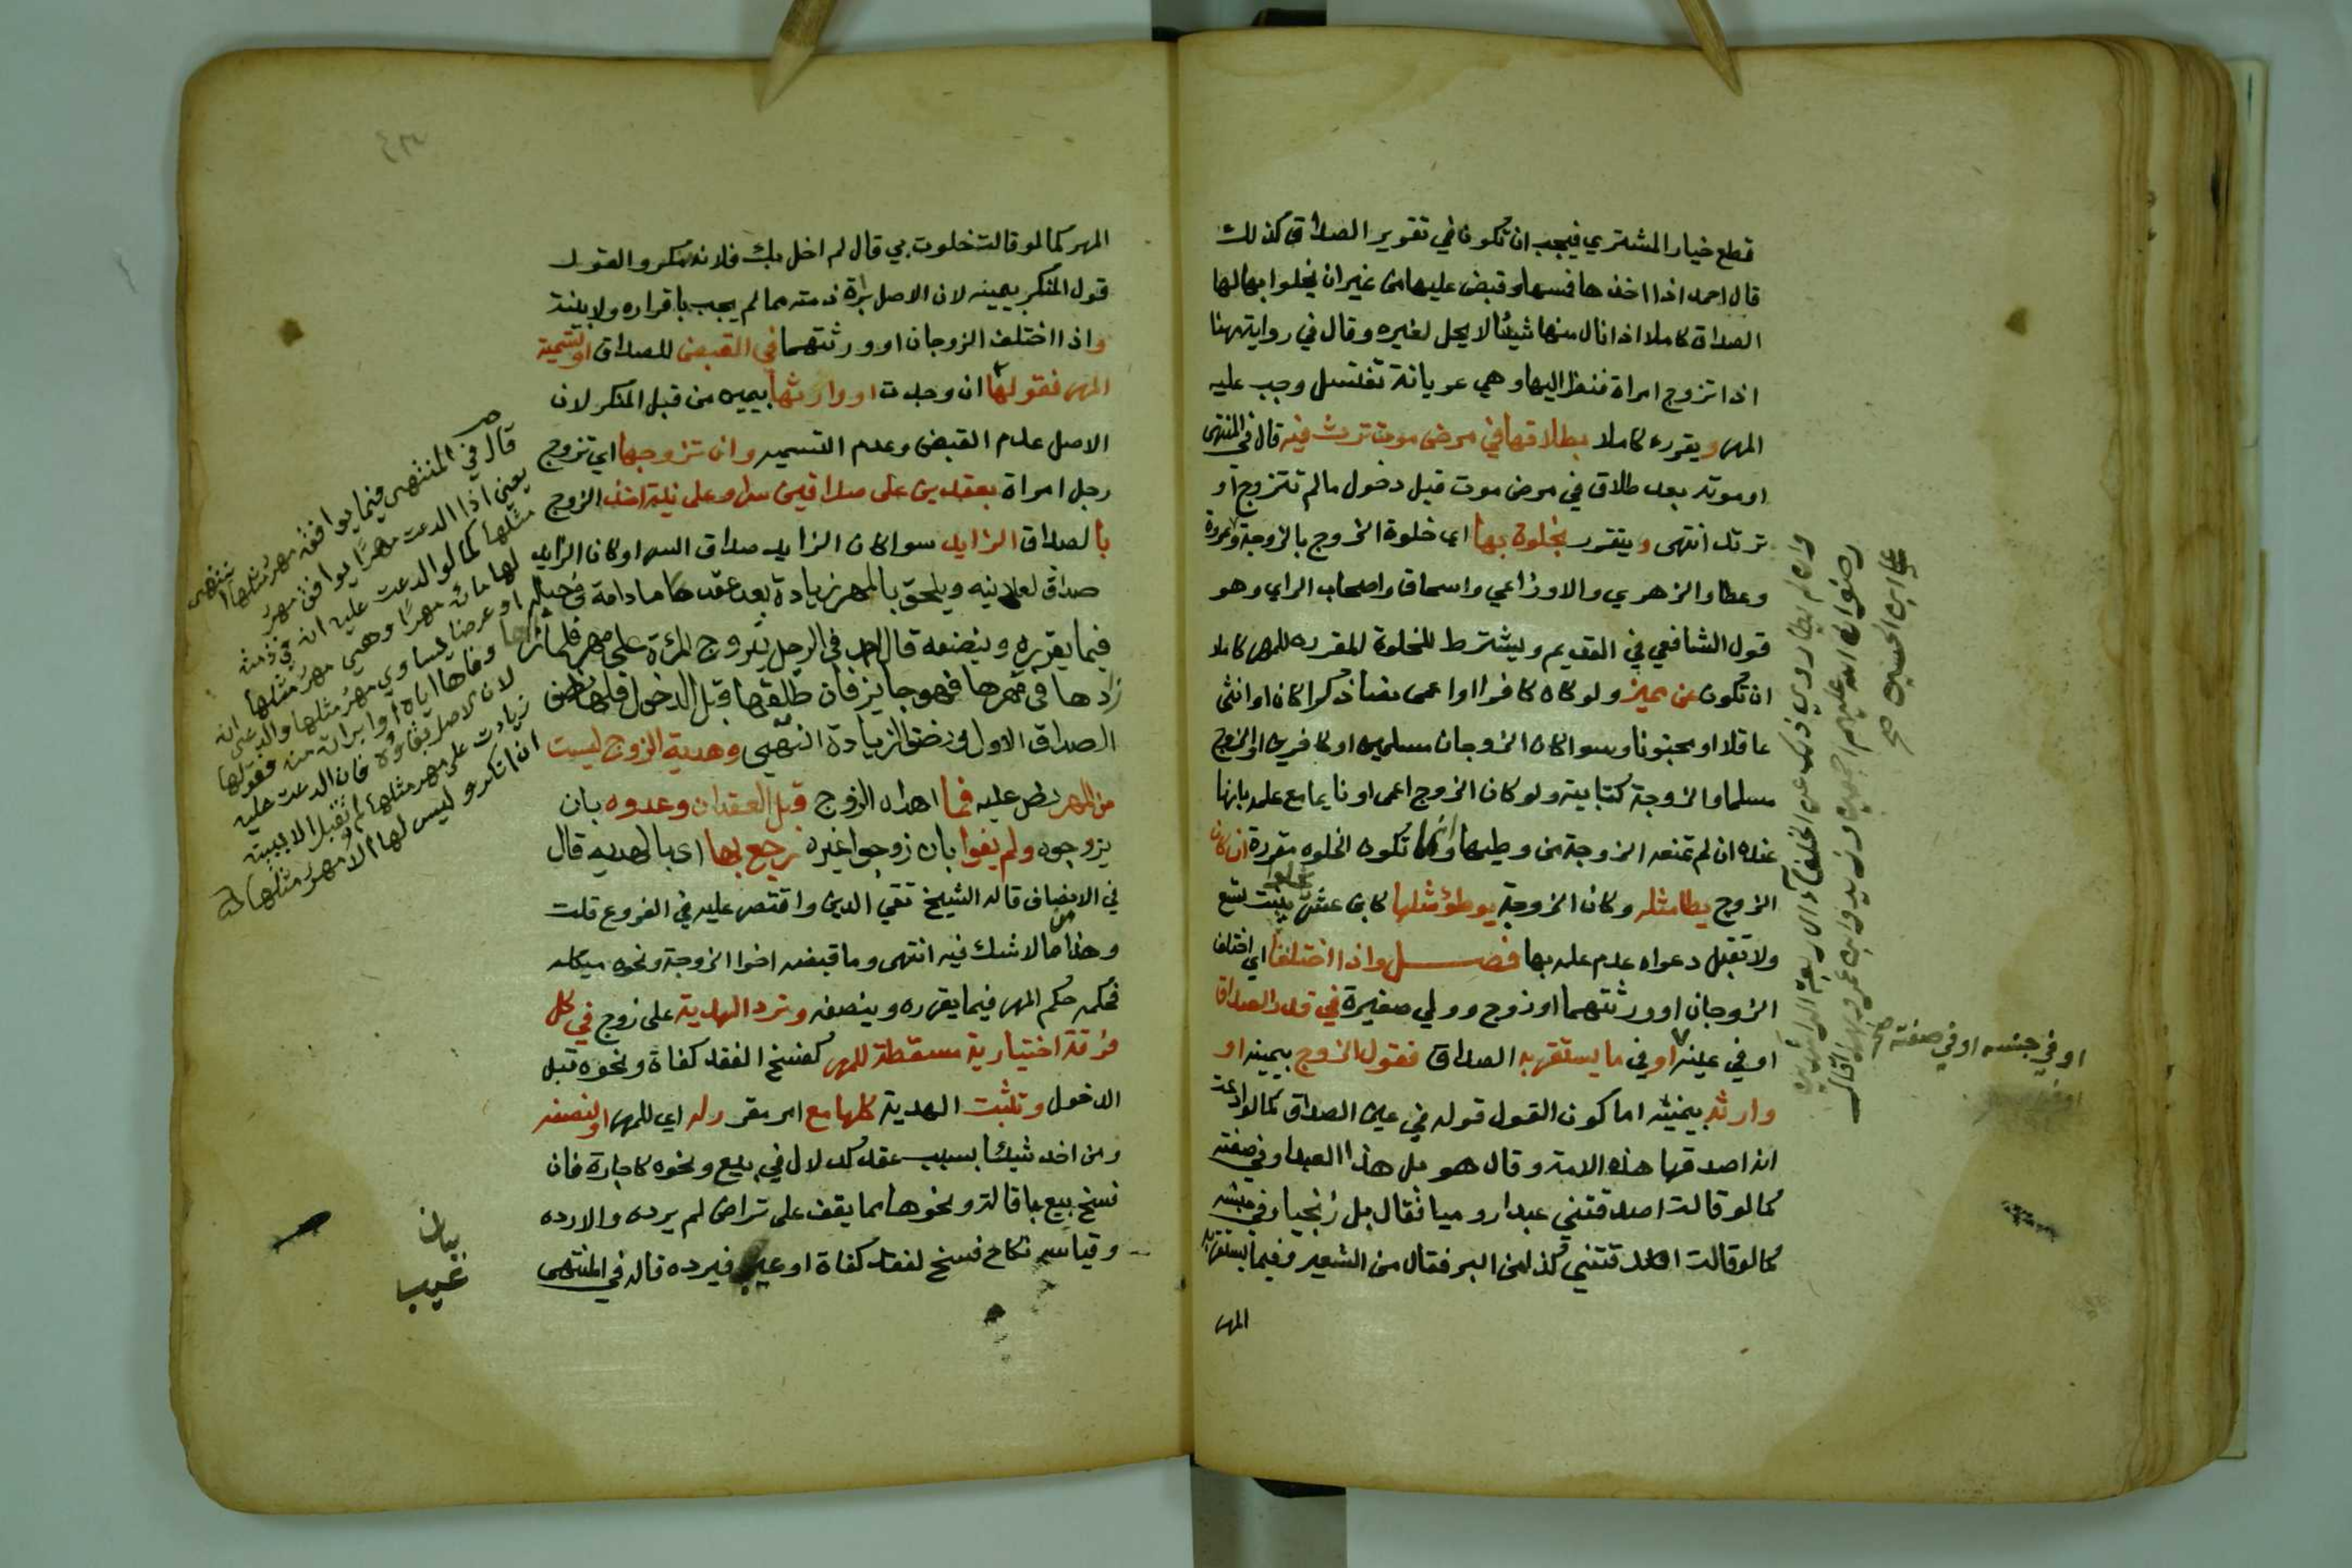 قطع خيار المشتري فيجب ان تكون في تقرير الصداق كذلك
قال احمد اذا اخذها فمسها وقبض عليها من غير ان يخلوا بها لها
الصداق كاملا اذا نال منها شيئا لا يحل لغيره وقال في رواية مهنا
اذا تزوج امراة فنظر اليها وهي عريانة تغتسل وجب عليه
المهر ويقرره كاملا بطلاقها في مرض موت ترث فيه قال في المنتهى
او موته بعد طلاق في مرض موت قبل دخول ما لم تتزوج او
ترتد انتهى ويتقرر بخلوة بها اي خلوة الزوج بالزوجة وعروة
وعطا والزهري والاوزاعي واسحاق واصحاب الراي وهو
قول الشافعي في القديم ويشترط للخلوة المقرره للمهر كاملا
ان تكون عن مميز ولو كان كافرا او اعمى نصا ذكرا كان او انثى
عاقلا او مجنونا وسوا كان الزوجان مسلمين او كافرين او الزوج
مسلما والزوجة كتابية ولو كان الزوج اعمى او نايما مع علمه بانها
عنده ان لم تمنعه الزوجة من وطيها وانما تكون الخلوه مقررة ان كان
الزوج يطا مثله وكان الزوجة يوطؤ مثلها كابن عشر بنت تسع
ولا تقبل دعواه عدم علمه بها فصل واذا اختلفا اي اختلف
الزوجان او ورثتهما او زوج وولي صغيرة في قدر الصداق
او في عينه او في ما يستقر به الصداق فقول الزوج بيمينه او
وارثه بيمينه اما كون القول قوله في عين الصداق كما لو ادعت
انه اصدقها هذه الامة وقال هو بل هذا العبد او في صفته
كما لو قالت اصدقتني عبدا روميا فقال بل زنجيا وفي جنسه
كما لو قالت اصدقتني كذا من البر فقال من الشعير وفيما يستقر به
المهر
وان لم يطا روي ذلك عن الخلفاء الاربعة الراشدين
رضوان الله عليهم اجمعين وزيد وابن عمر وبه قال
علي ابن الحسين صح
او في جنسه او في صفته صح
المهر كما لو قالت خلوت بي قال لم اخل بك فلانه منكر والقول
قول المنكر بيمينه لان الاصل براة ذمته مما لم يجب باقراره ولا بينة
واذا اختلف الزوجان او ورثتهما في القبض للصداق او تسمية
المهر فقولها ان وجدت او وارثها بيمينه من قبل المنكر لان
الاصل عدم القبض وعدم التسميه وان تزوجها اي تزوج
رجل امراة بعقدين على صداقين سرا وعلانية اخذ الزوج
بالصداق الزايد سوا كان الزايد صداق السر او كان الزايد
صداق لعلانيه ويلحق بالمهر زيادة بعد عقدها ما دامة في حباله
فيما يقرره وينصفه قال احمد في الرجل يتزوج المرة على مهر فلما رآها
زادها في مهرها فهو جايز فان طلقها قبل الدخول فلها نصف
الصداق الاول ونصف الزيادة انتهى وهدية الزوج ليست
من المهر نص عليه فما اهداه الزوج قبل العقد ان وعدوه بان
يزوجوه ولم يفوا بان زوجوا غيره رجع بها اي بالهديه قال
في الانصاف قاله الشيخ تقي الدين واقتصر عليه في الفروع قلت
وهذا مما لا شك فيه انتهى وما قبضه اخوا الزوجة ونحوه
فحكمه حكم المهر فيما يقرره وينصفه وترد الهدية على زوج في كل
فرقة اختيارية مسقطة للمهر كفسخ لفقد كفاة ونحوه قبل
الدخول وتثبت الهدية كلها مع امر مقرر له اي للمهر او لنصفه
ومن اخذ شيئا بسبب عقد كدلال في بيع ونحوه كاجارة فان
فسخ بيع باقالة ونحوها مما يقف على تراض لم يرده والا رده
وقياسه نكاح فسخ لفقد كفاة او عيب فيرده قاله في المنتهى
قال في المنتهى فيما يوافق مهر مثلها انتهى
يعني اذا ادعت مهرا يوافق مهر
مثلها كما لو ادعت عليه ان في ذمته
لها مائة مهرا وهي مهر مثلها
او عرضا يساوي مهر مثلها وادعى انه
وفاها اياه او ابراته منه فقولها
لان الاصل بقاؤه فان ادعت عليه
زيادت على مهر مثلها لم تقبل الا ببينة
ان انكر وليس لها الا مهر مثلها
بيان
غريب